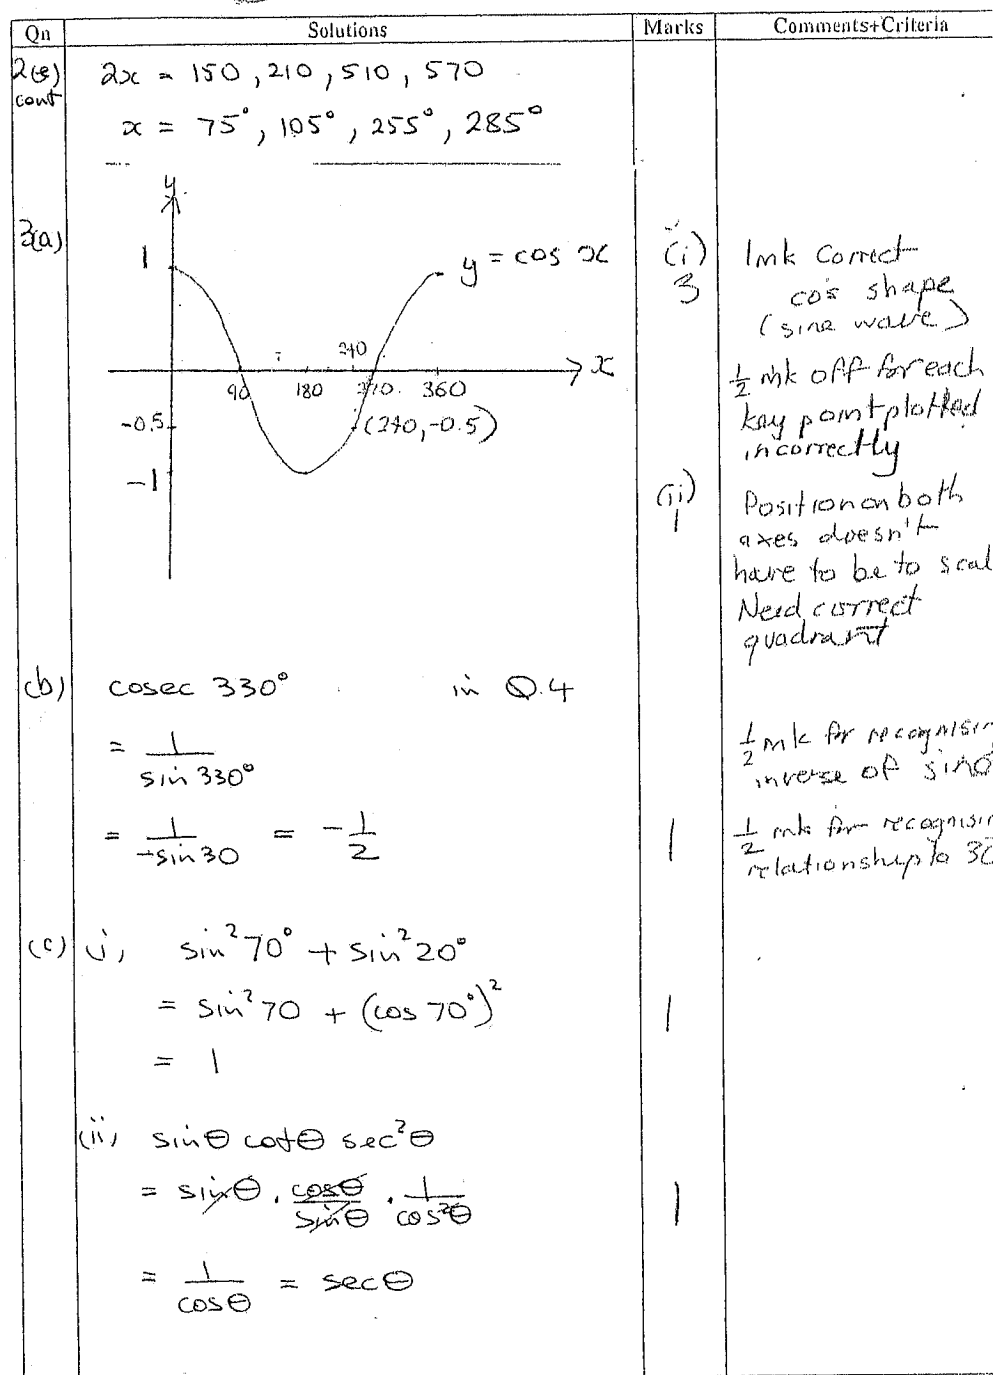 Qn Solutions Marks Comments+Criteria
2(e) cont
2x = 150, 210, 510, 570
x = 75°, 105°, 255°, 285°
3(a)
y
1
y = cos x
240
x
90 180 270. 360
-0.5
(240, -0.5)
-1
(i)
3
1mk Correct
cos shape
(sine wave)
1/2 mk off for each
key point plotted
incorrectly
(ii)
1
Position on both
axes doesn't
have to be to scal
Need correct
quadrant
(b) cosec 330° in Q.4
= 1/sin 330°
= 1/-sin 30 = -1/2
1
1/2 mk for recognisin
inverse of sinθ
1/2 mk for recognisin
relationship to 30
(c) i, sin²70° + sin²20°
= sin²70 + (cos 70°)²
1
= 1
(ii, sinθ cotθ sec²θ
= sinθ . cosθ/sinθ . 1/cos²θ
1
= 1/cosθ = secθ